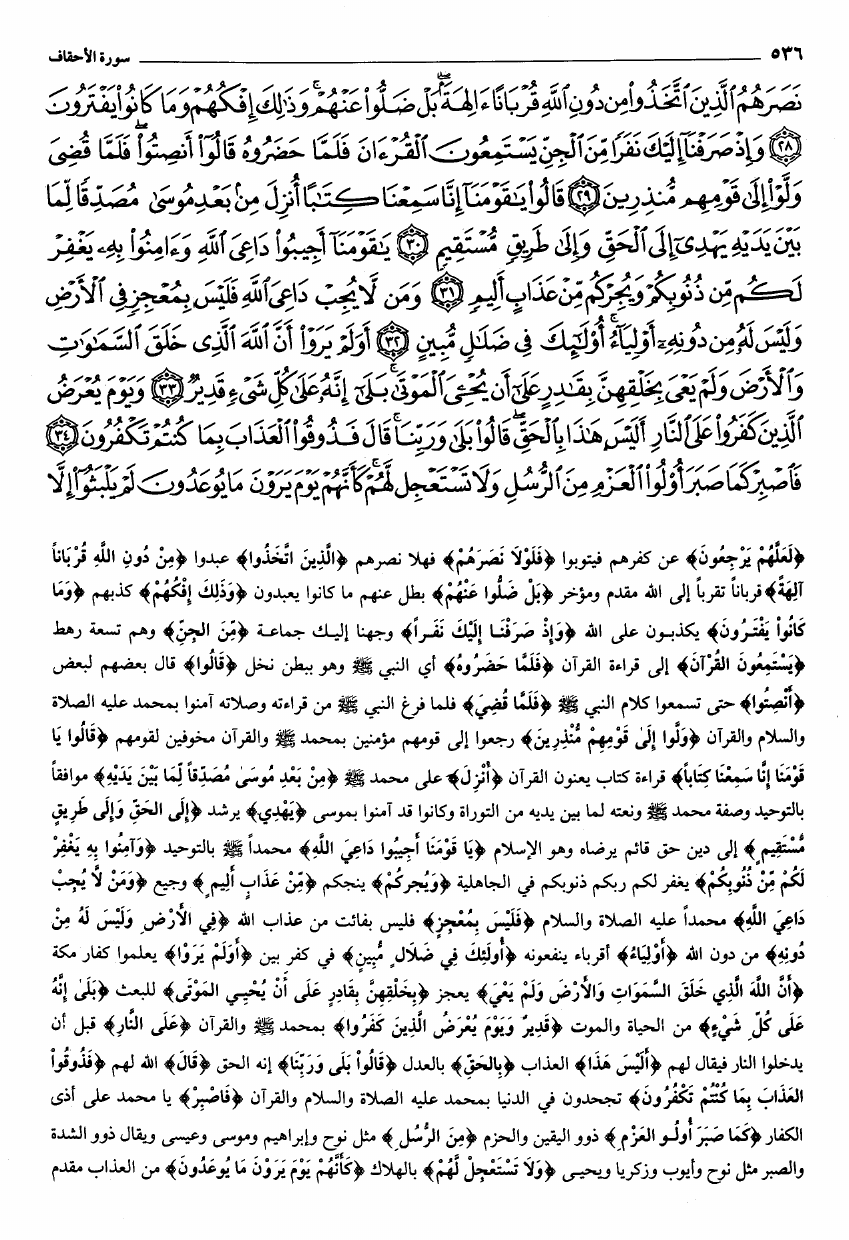 ٥٣٦ سورة الأحقاف
نَصَرَهُمُ ٱلَّذِينَ ٱتَّخَذُوا۟ مِن دُونِ ٱللَّهِ قُرْبَانًا ءَالِهَةًۢ ۖ بَلْ ضَلُّوا۟ عَنْهُمْ ۚ وَذَٰلِكَ إِفْكُهُمْ وَمَا كَانُوا۟ يَفْتَرُونَ
٢٨ وَإِذْ صَرَفْنَآ إِلَيْكَ نَفَرًا مِّنَ ٱلْجِنِّ يَسْتَمِعُونَ ٱلْقُرْءَانَ فَلَمَّا حَضَرُوهُ قَالُوٓا۟ أَنصِتُوا۟ ۖ فَلَمَّا قُضِىَ
وَلَّوْا۟ إِلَىٰ قَوْمِهِم مُّنذِرِينَ ٢٩ قَالُوا۟ يَٰقَوْمَنَآ إِنَّا سَمِعْنَا كِتَٰبًا أُنزِلَ مِنۢ بَعْدِ مُوسَىٰ مُصَدِّقًا لِّمَا
بَيْنَ يَدَيْهِ يَهْدِىٓ إِلَى ٱلْحَقِّ وَإِلَىٰ طَرِيقٍ مُّسْتَقِيمٍ ٣٠ يَٰقَوْمَنَآ أَجِيبُوا۟ دَاعِىَ ٱللَّهِ وَءَامِنُوا۟ بِهِۦ يَغْفِرْ
لَكُم مِّن ذُنُوبِكُمْ وَيُجِرْكُم مِّنْ عَذَابٍ أَلِيمٍ ٣١ وَمَن لَّا يُجِبْ دَاعِىَ ٱللَّهِ فَلَيْسَ بِمُعْجِزٍ فِى ٱلْأَرْضِ
وَلَيْسَ لَهُۥ مِن دُونِهِۦٓ أَوْلِيَآءُ ۚ أُو۟لَٰٓئِكَ فِى ضَلَٰلٍ مُّبِينٍ ٣٢ أَوَلَمْ يَرَوْا۟ أَنَّ ٱللَّهَ ٱلَّذِى خَلَقَ ٱلسَّمَٰوَٰتِ
وَٱلْأَرْضَ وَلَمْ يَعْىَ بِخَلْقِهِنَّ بِقَٰدِرٍ عَلَىٰٓ أَن يُحْۦِىَ ٱلْمَوْتَىٰ ۚ بَلَىٰٓ إِنَّهُۥ عَلَىٰ كُلِّ شَىْءٍ قَدِيرٌ ٣٣ وَيَوْمَ يُعْرَضُ
ٱلَّذِينَ كَفَرُوا۟ عَلَى ٱلنَّارِ أَلَيْسَ هَٰذَا بِٱلْحَقِّ ۖ قَالُوا۟ بَلَىٰ وَرَبِّنَا ۚ قَالَ فَذُوقُوا۟ ٱلْعَذَابَ بِمَا كُنتُمْ تَكْفُرُونَ ٣٤
فَٱصْبِرْ كَمَا صَبَرَ أُو۟لُوا۟ ٱلْعَزْمِ مِنَ ٱلرُّسُلِ وَلَا تَسْتَعْجِل لَّهُمْ ۚ كَأَنَّهُمْ يَوْمَ يَرَوْنَ مَا يُوعَدُونَ لَمْ يَلْبَثُوٓا۟ إِلَّا
﴿لَعَلَّهُمْ يَرْجِعُونَ﴾ عن كفرهم فيتوبوا ﴿فَلَوْلَا نَصَرَهُمْ﴾ فهلا نصرهم ﴿الَّذِينَ اتَّخَذُوا﴾ عبدوا ﴿مِنْ دُونِ اللَّهِ قُرْبَاناً
آلِهَةً﴾ قرباناً تقرباً إلى الله مقدم ومؤخر ﴿بَلْ ضَلُّوا عَنْهُمْ﴾ بطل عنهم ما كانوا يعبدون ﴿وَذَلِكَ إِفْكُهُمْ﴾ كذبهم ﴿وَمَا
كَانُوا يَفْتَرُونَ﴾ يكذبون على الله ﴿وَإِذْ صَرَفْنَا إِلَيْكَ نَفَراً﴾ وجهنا إليك جماعة ﴿مِّنَ الجِنِّ﴾ وهم تسعة رهط
﴿يَسْتَمِعُونَ القُرْآنَ﴾ إلى قراءة القرآن ﴿فَلَمَّا حَضَرُوهُ﴾ أي النبي ﷺ وهو ببطن نخل ﴿قَالُوا﴾ قال بعضهم لبعض
﴿أَنْصِتُوا﴾ حتى تسمعوا كلام النبي ﷺ ﴿فَلَمَّا قُضِيَ﴾ فلما فرغ النبي ﷺ من قراءته وصلاته آمنوا بمحمد عليه الصلاة
والسلام والقرآن ﴿وَلَّوا إِلَىٰ قَوْمِهِمْ مُّنْذِرِينَ﴾ رجعوا إلى قومهم مؤمنين بمحمد ﷺ والقرآن مخوفين لقومهم ﴿قَالُوا يَا
قَوْمَنَا إِنَّا سَمِعْنَا كِتَاباً﴾ قراءة كتاب يعنون القرآن ﴿أُنْزِلَ﴾ على محمد ﷺ ﴿مِنْ بَعْدِ مُوسَىٰ مُصَدِّقاً لِّمَا بَيْنَ يَدَيْهِ﴾ موافقاً
بالتوحيد وصفة محمد ﷺ ونعته لما بين يديه من التوراة وكانوا قد آمنوا بموسى ﴿يَهْدِي﴾ يرشد ﴿إِلَى الحَقِّ وَإِلَى طَرِيقٍ
مُّسْتَقِيمٍ﴾ إلى دين حق قائم يرضاه وهو الإسلام ﴿يَا قَوْمَنَا أَجِيبُوا دَاعِيَ اللَّهِ﴾ محمداً ﷺ بالتوحيد ﴿وَآمِنُوا بِهِ يَغْفِرْ
لَكُمْ مِّنْ ذُنُوبِكُمْ﴾ يغفر لكم ربكم ذنوبكم في الجاهلية ﴿وَيُجِرْكُمْ﴾ ينجكم ﴿مِّنْ عَذَابٍ أَلِيمٍ﴾ وجيع ﴿وَمَنْ لَّا يُجِبْ
دَاعِيَ اللَّهِ﴾ محمداً عليه الصلاة والسلام ﴿فَلَيْسَ بِمُعْجِزٍ﴾ فليس بفائت من عذاب الله ﴿فِي الأَرْضِ وَلَيْسَ لَهُ مِنْ
دُونِهِ﴾ من دون الله ﴿أَوْلِيَاءُ﴾ أقرباء ينفعونه ﴿أُولَئِكَ فِي ضَلَالٍ مُّبِينٍ﴾ في كفر بين ﴿أَوَلَمْ يَرَوْا﴾ يعلموا كفار مكة
﴿أَنَّ اللَّهَ الَّذِي خَلَقَ السَّمَوَاتِ وَالأَرْضَ وَلَمْ يَعْيَ﴾ يعجز ﴿بِخَلْقِهِنَّ بِقَادِرٍ عَلَى أَنْ يُحْيِيَ المَوْتَى﴾ للبعث ﴿بَلَىٰ إِنَّهُ
عَلَى كُلِّ شَيْءٍ﴾ من الحياة والموت ﴿قَدِيرٌ وَيَوْمَ يُعْرَضُ الَّذِينَ كَفَرُوا﴾ بمحمد ﷺ والقرآن ﴿عَلَى النَّارِ﴾ قبل أن
يدخلوا النار فيقال لهم ﴿أَلَيْسَ هَذَا﴾ العذاب ﴿بِالحَقِّ﴾ بالعدل ﴿قَالُوا بَلَى وَرَبِّنَا﴾ إنه الحق ﴿قَالَ﴾ الله لهم ﴿فَذُوقُوا
العَذَابَ بِمَا كُنْتُمْ تَكْفُرُونَ﴾ تجحدون في الدنيا بمحمد عليه الصلاة والسلام والقرآن ﴿فَاصْبِرْ﴾ يا محمد على أذى
الكفار ﴿كَمَا صَبَرَ أُولُو العَزْمِ﴾ ذوو اليقين والحزم ﴿مِنَ الرُّسُلِ﴾ مثل نوح وإبراهيم وموسى وعيسى ويقال ذوو الشدة
والصبر مثل نوح وأيوب وزكريا ويحيى ﴿وَلَا تَسْتَعْجِلْ لَّهُمْ﴾ بالهلاك ﴿كَأَنَّهُمْ يَوْمَ يَرَوْنَ مَا يُوعَدُونَ﴾ من العذاب مقدم